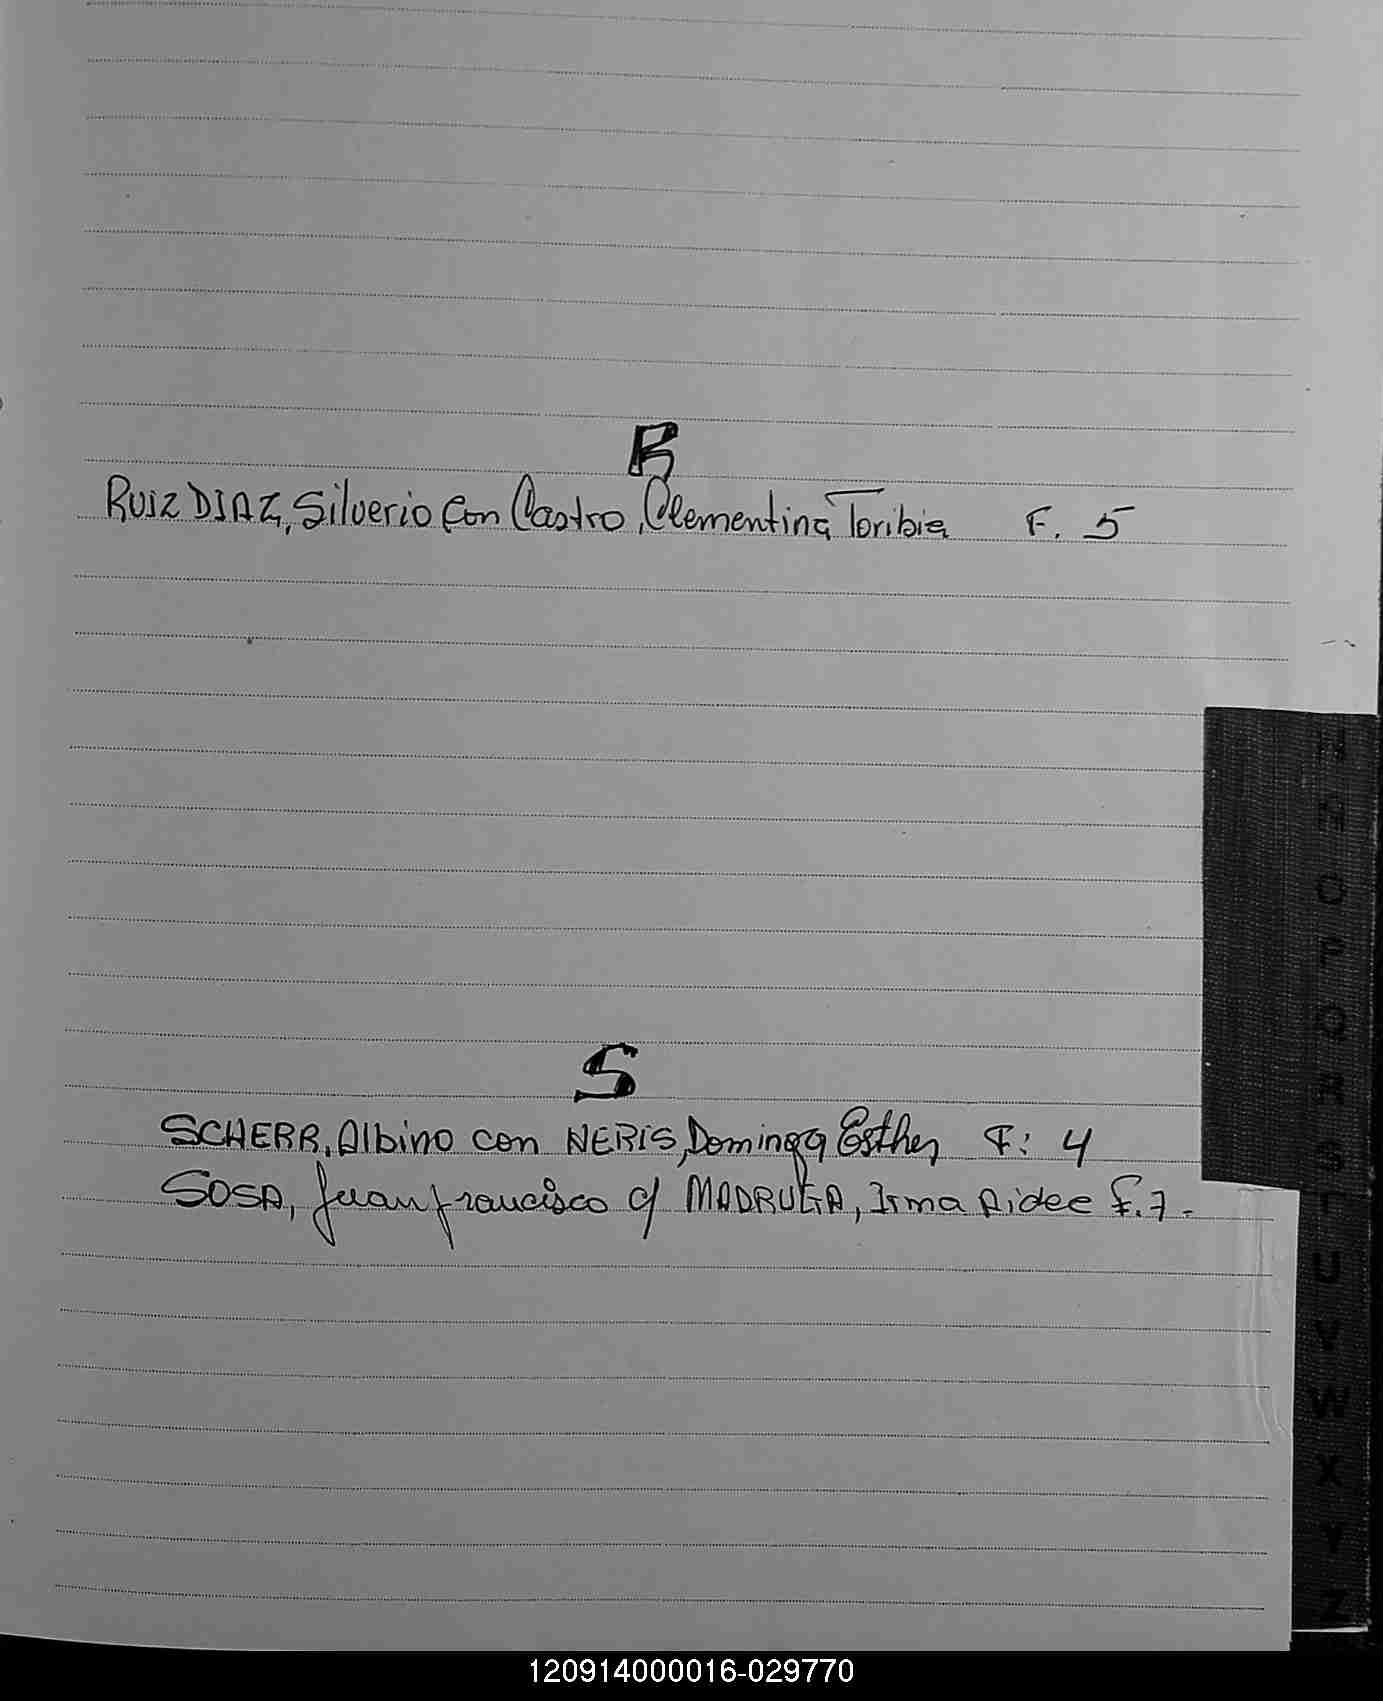 R
RUIZ DIAZ, Silverio con Castro, Clementina Toribia F. 5
S
SCHERR, Albino con NERIS, Dominga Esther F: 4
SOSA, Juan francisco c/ MADRUGA, Irma Aidee f. 7.-
M
N
O
P
Q
R
S
T
U
V
W
X
Y
Z
120914000016-029770